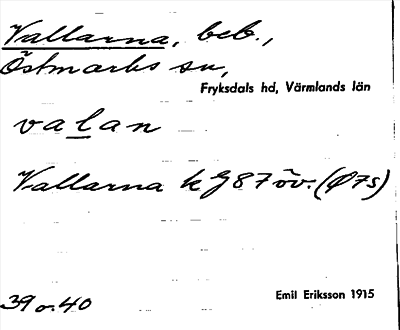 Vallarna, beb.,
Östmarks sn,
Fryksdals hd, Värmlands län
valan
Vallarna k G87 öv. (Ø7s)
Emil Eriksson 1915
39 o. 40